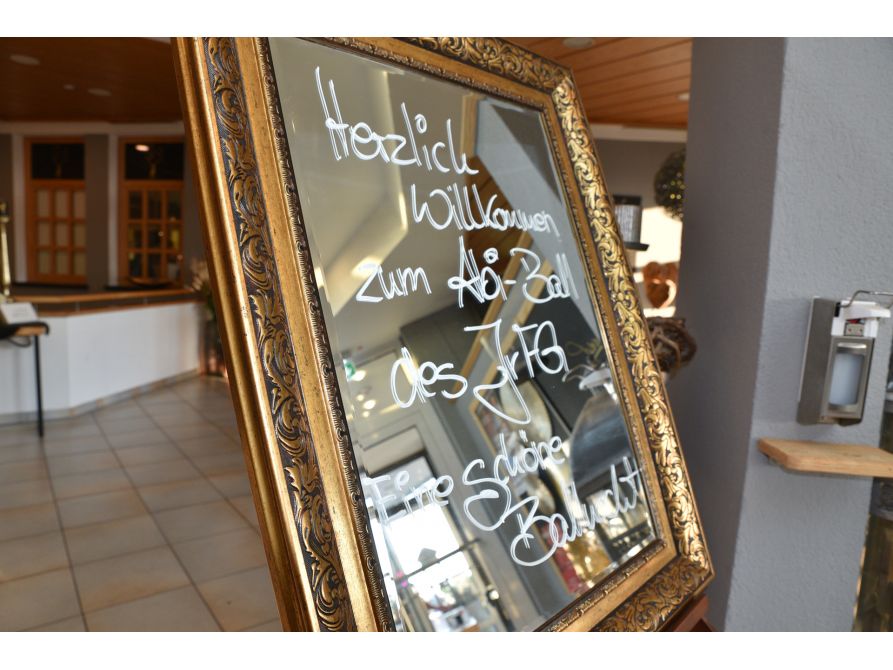 Herzlich
Willkommen
zum Abi-Ball
des JvFG
Eine schöne
Ballnacht